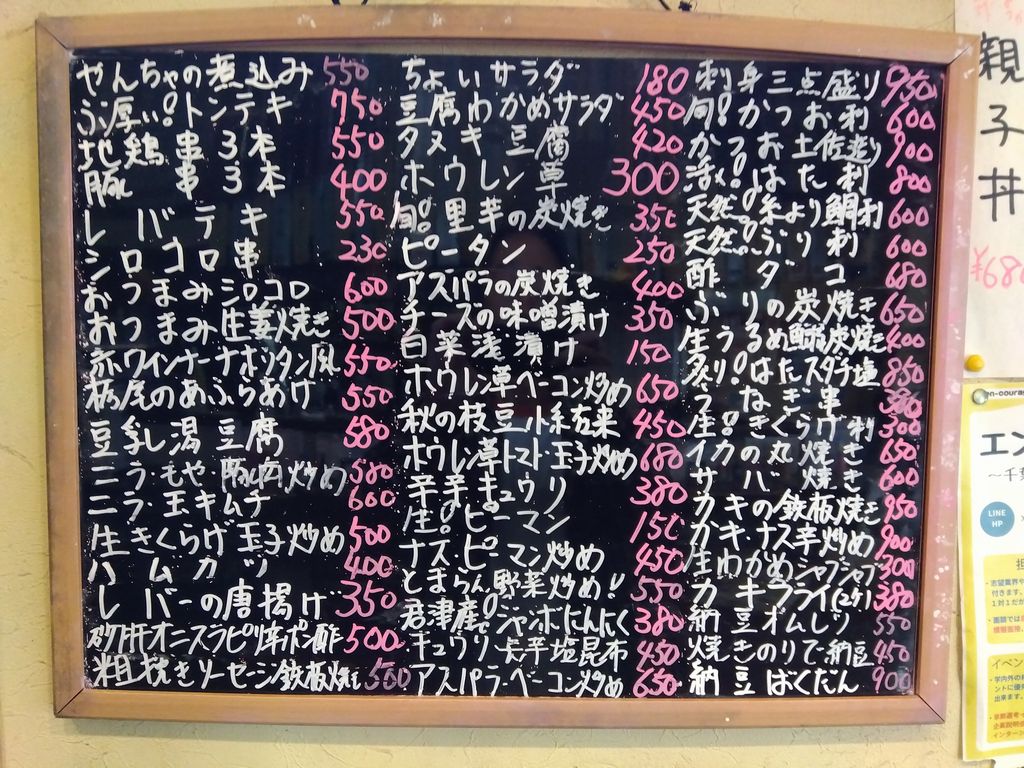 やんちゃの煮込み 550
ぶ厚い!トンテキ 750
地鶏串3本 550
豚串3本 400
レバテキ 550
シロコロ串 230
おつまみシロコロ 600
おつまみ生姜焼き 500
赤ワインナーナポリタン風 550
栃尾のあぶらあげ 550
豆乳し湯豆腐 580
ニラもや豚肉炒め 580
ニラ玉キムチ 600
生きくらげ玉子炒め 500
ハムカツ 400
レバーの唐揚げ 350
オニスラピリ辛ポン酢 500
粗挽きソーセージ鉄板焼き 550
ちょいサラダ 180
豆腐わかめサラダ 450
タヌキ豆腐 420
ホウレン草 300
旬!里芋の炭焼き 350
ピータン 250
アスパラの炭焼き 400
チーズの味噌漬け 350
白菜浅漬け 150
ホウレン草ベーコン炒め 650
秋の枝豆小糸在来 450
ホウレン草トマト玉子炒め 680
辛辛キュウリ 380
生!ピーマン 150
ナス・ピーマン炒め 450
とまらん野菜炒め!! 550
君津産!ジャンボにんにく 380
キュウリ辛塩昆布 450
アスパラ・ベーコン炒め 650
刺身三点盛り 950
旬!かつお刺 600
かつお土佐造り 900
活!はた刺 800
天然!糸より鯛刺 600
天然!ぶり刺 600
酢ダコ 680
ぶりの炭焼き 650
生うるめ鰯炭焼き 400
炙り!はたスダチ塩 850
うなぎ串 380
生!きくらげ刺 300
イカの丸焼き 650
サバ焼き 600
カキの鉄板焼き 950
カキ・ナス辛炒め 900
生わかめシャブシャブ 300
カキフライ(2ケ) 380
納豆オムレツ 550
焼きのりで納豆 450
納豆ばくだん 900
親子丼
¥680
エン
LINE
HP